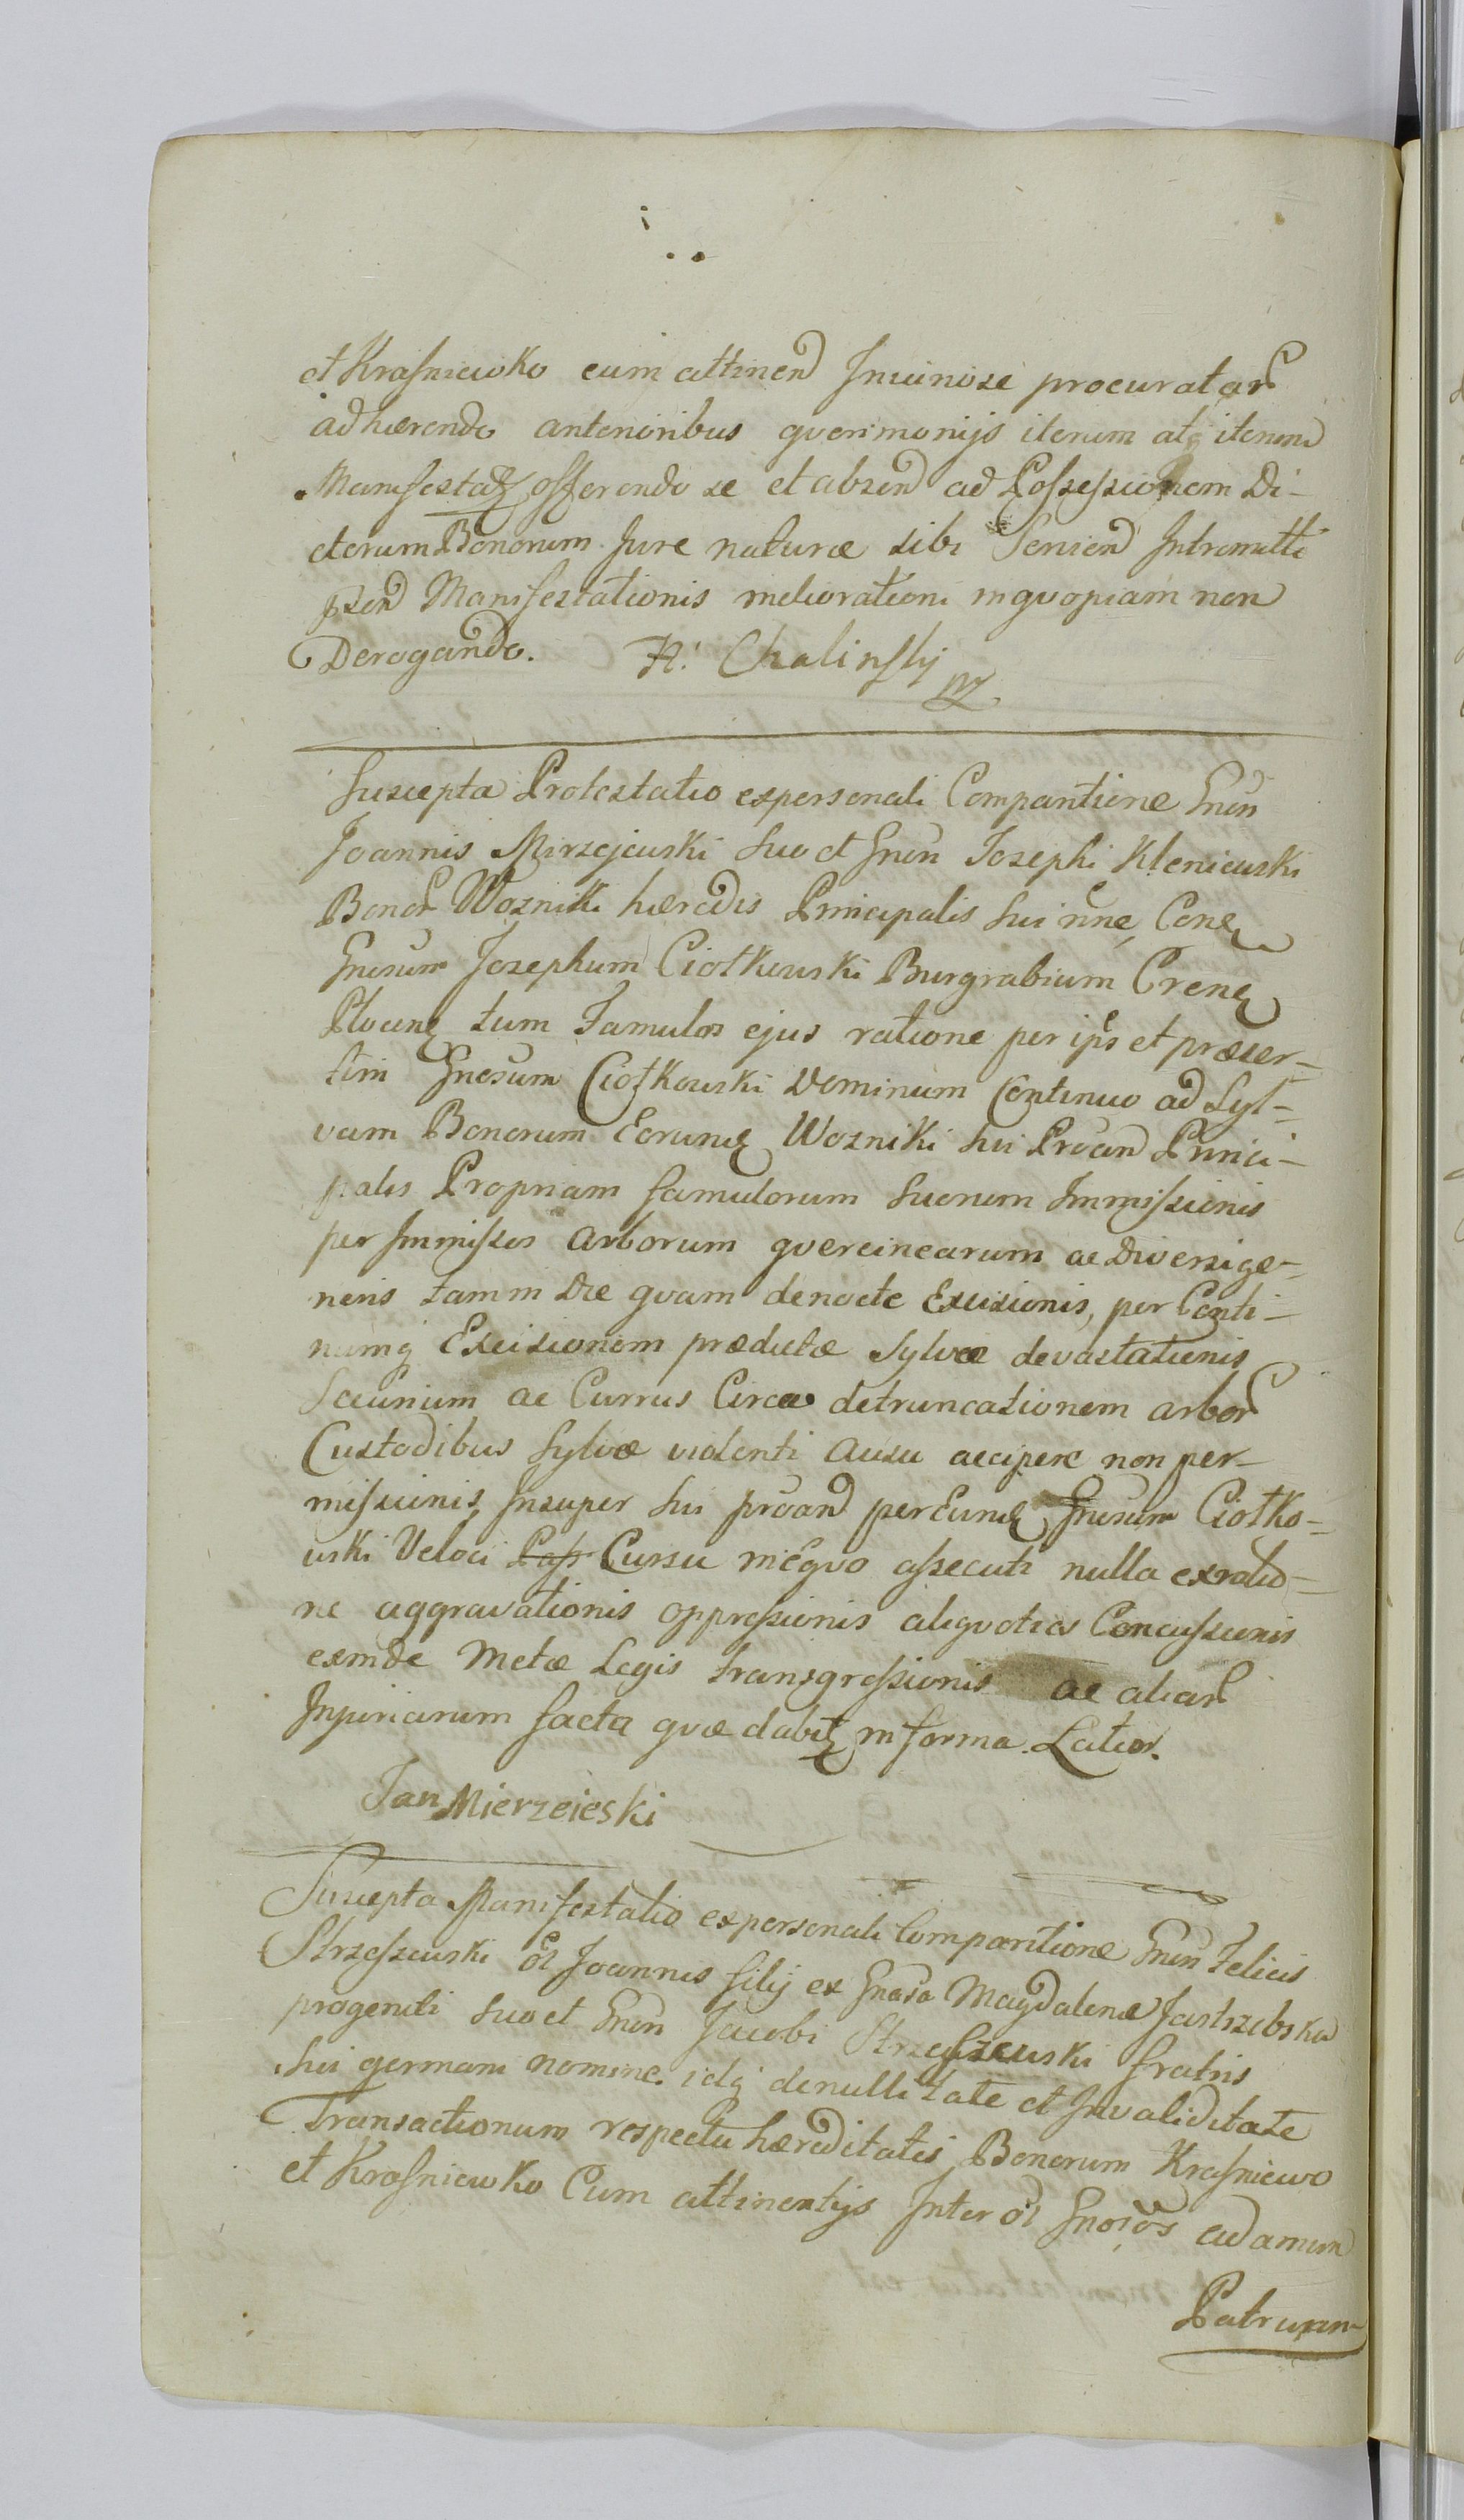 et Krasniewko cum attinen Iniuriose procuratar
adhærendo anterioribus qverimonijs iterum atq iterum
Manifestatz offerendo se et absen ad Possessionem Di-
ctorum Bonorum Jure naturæ sibi Servien Intromitti
psen Manifestationis meliorationi inqvopiam non
Derogando. Chalinsky mz
Suscepta Protestatio expersonali Comparitione Gnen
Joannis Mirzejewski suo et Gnen Josephi Kleniewski
Bonor Wozniki hæredis Principalis sui nne Conq
Gnosum Josephum Ciotkowski Burgrabium Crenq
Plocenq tum Famulos ejus ratione per ips et præser-
tim Gnosum Ciotkowski Dominum Continuo ad Syl-
vam Bonorum Eorumq Wozniki sui Proan Princi-
palis Propriam famulorum Suorum Immissionis
per Immissos arborum qvercinearum ac Diversige-
neris tam in Die qvam denocte Excisionis, per Conti-
numq Excisionem prædictæ Sylvæ devastationis
Securium ac Currus Circa detruncationem arbor
Custodibus Sylvæ violenti ausu accipere non per-
missionis, Insuper sui proan per Eumq Gnosum Ciotko-
wski Veloci Pass Cursu in eqvo assecuti nulla exratio-
ne aggravationis oppressionis aliqvoties Concussionis
exinde Metæ Legis transgressionis ac aliar
Injuriarum facta qvæ dabitz in forma Latior.
Jan Mierzeieski
Suscepta Manifestatio expersonali Comparitione Gnen Felicis
Strzeszewski ol Joannis filij ex Gnosa Magdalena Jastrzebska
progeniti suo et Gnen Jacobi Strzeszewski fratris
sui germani nomine idq denullitate et Invaliditate
Transactionum respectu hæreditatis Bonorum Krasniewo
et Krasniewko Cum attinentijs Inter ol Gnosos adamum
Patruum-